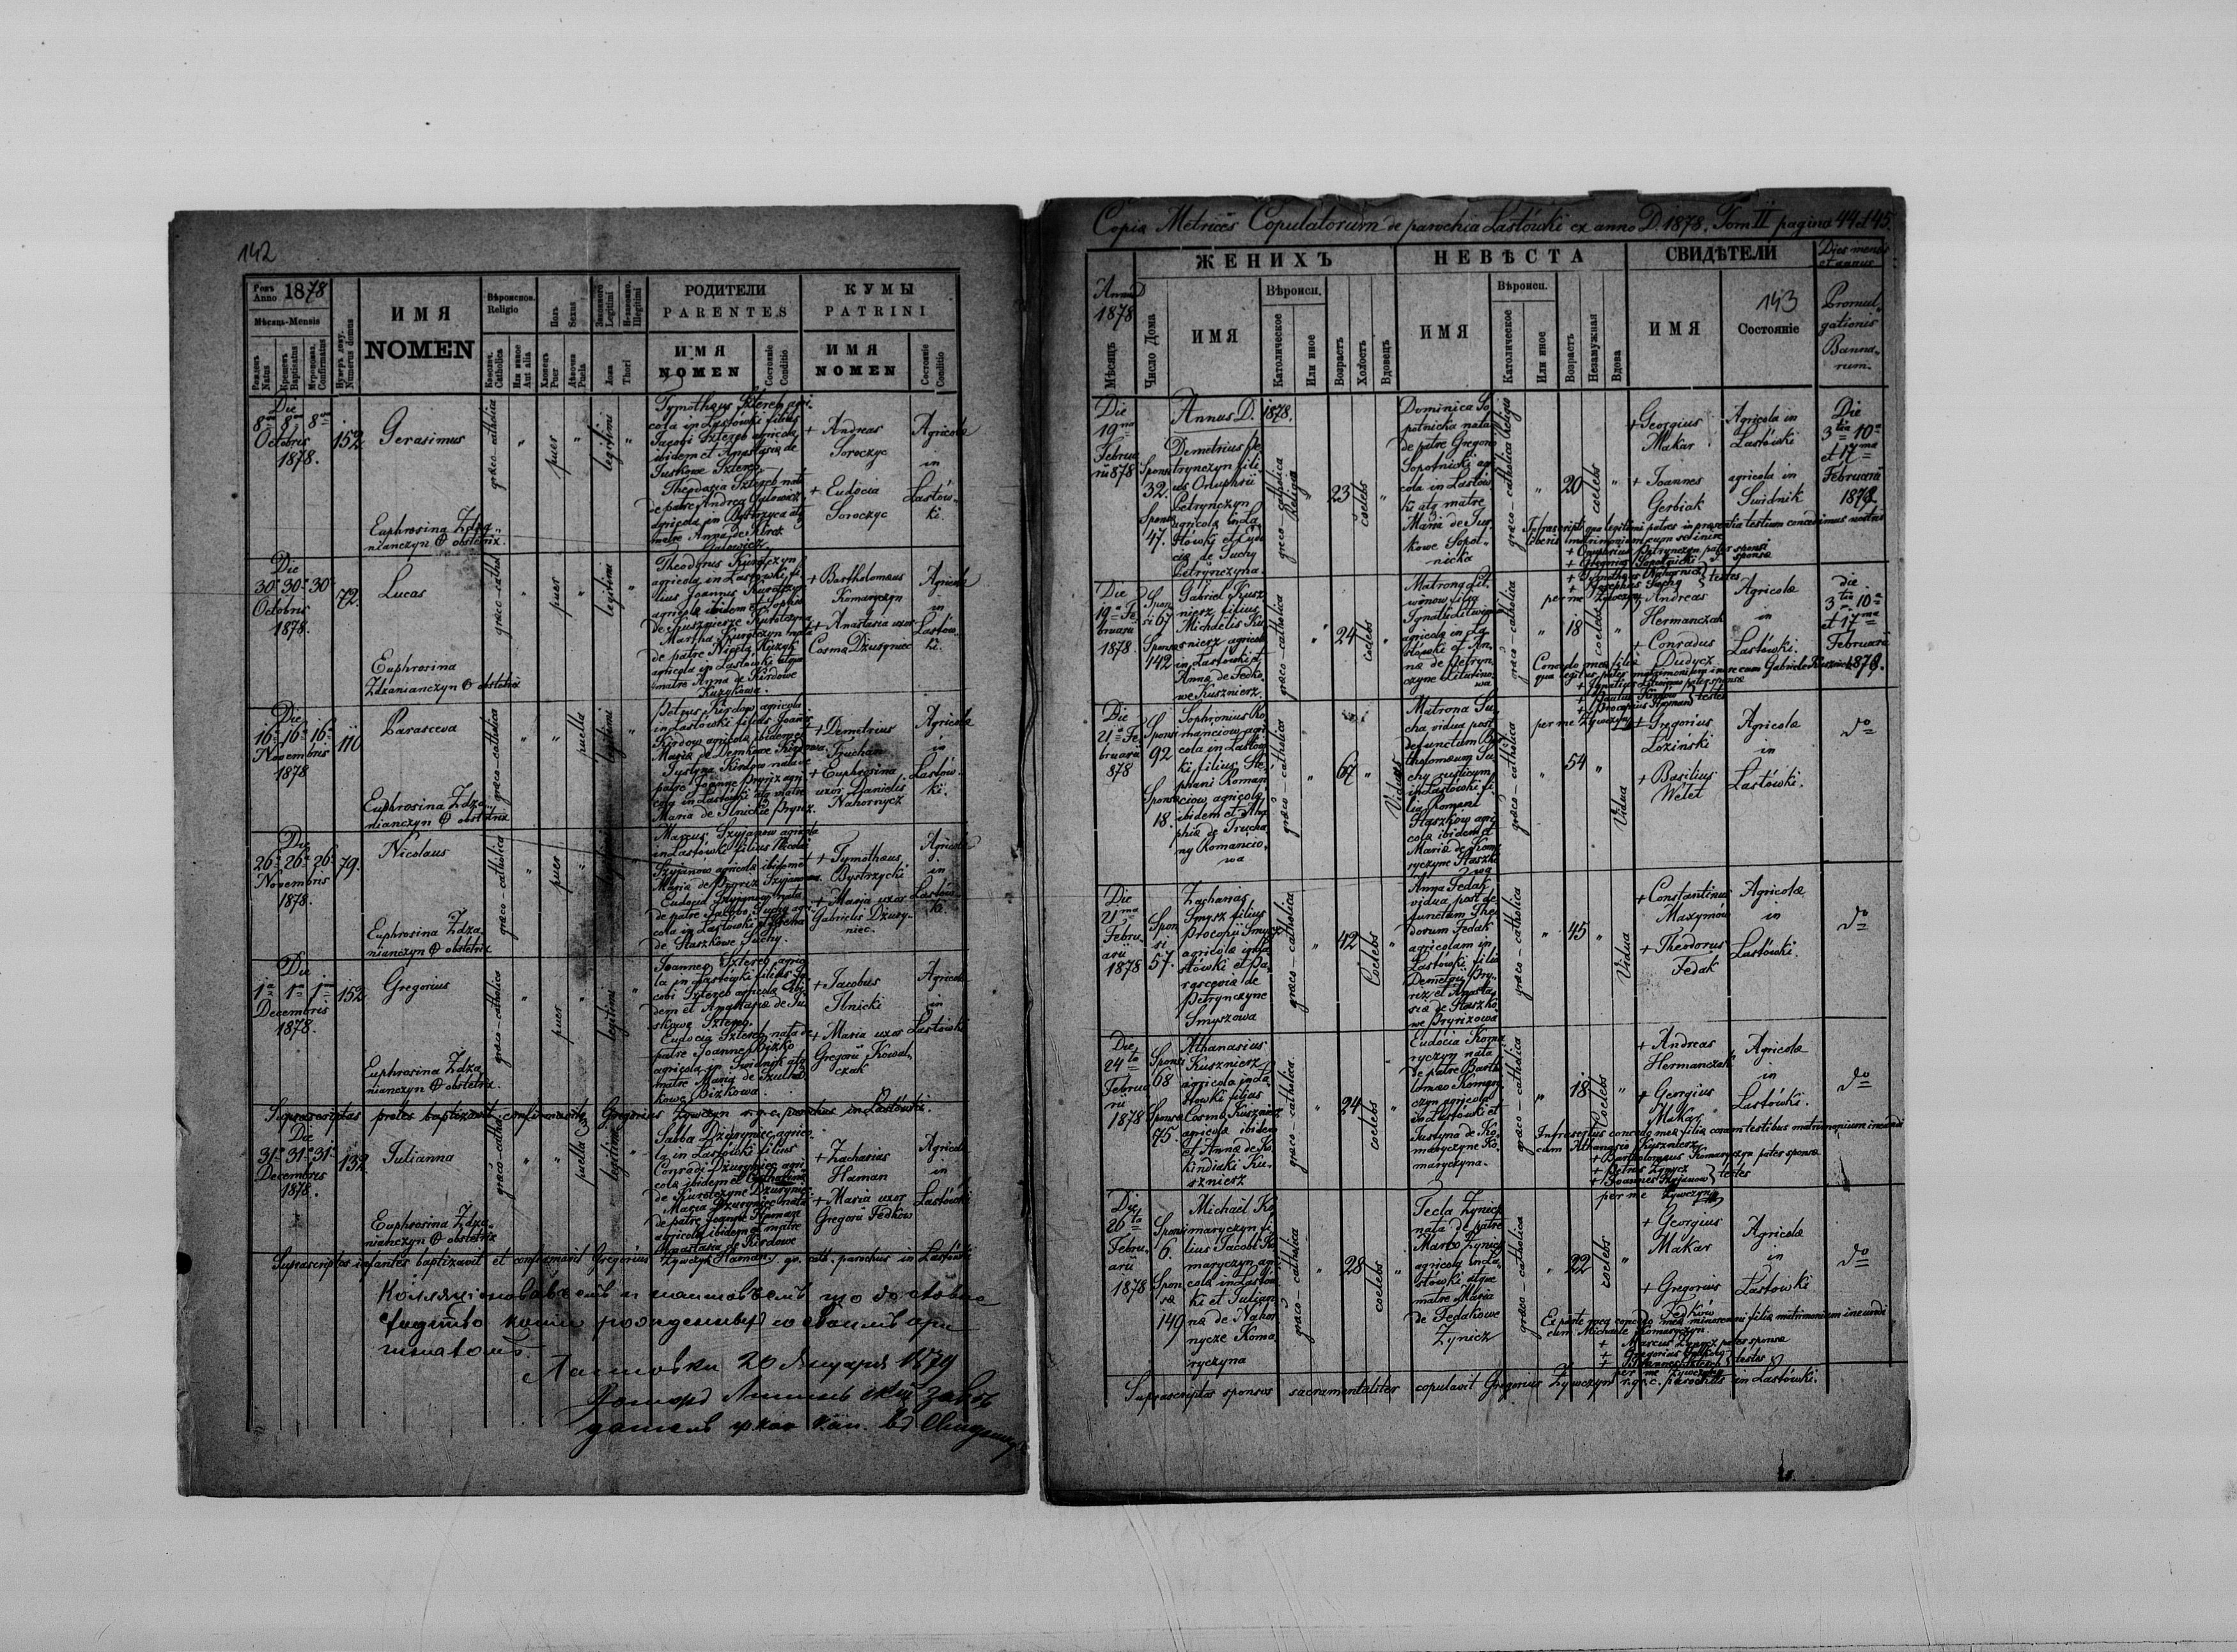 142
Годъ Anno 1878
Мѣсяць-Mensis
Рожденъ Natus
Крещенъ Baptisatus
Мѵропомаз. Confirmatus
Нумеръ дому. Numerus domus
ИМЯ
NOMEN
Вѣроиспов. Religio
Католич. Catholica
Или инное Aut alia
Полъ Sexus
Хлопецъ Puer
Дѣвочка Puella
Законного Legitimi
Незаконно. Illegitimi
Ложа Thori
РОДИТЕЛИ
PARENTES
ИМЯ
NOMEN
Состояніе Conditio
КУМЫ
PATRINI
ИМЯ
NOMEN
Состояніе Conditio
Die
8va 8va 8va
Octobris
1878.
152
Gerasimus
graeco-catholica
puer
legitimi
Tymotheus Sztereb agri-
cola in Lastówki filius
Jacobi Sztereb agricola
ibidem et Anastasiae de
Juskowe Sztereb
Theodosia Sztereb nata
de patre Andrea
agricola in Bystrzyca atq
matre Anna de
+ Andreas
Soroczyc
+ Eudocia
Soroczyc
Agricola
in
Lastów-
ki.
Euphrosina Zdza-
nianczyn obstetrix.
Die
30 30 30
Octobris
1878.
72.
Lucas
graeco-cathol
puer
legitimi
Theodorus Kurotczyn
agricola in Lastówki fi-
lius Joannis Kurotczyn
agricola ibidem et Sophia
de Kusznierze Kurotczyna
Martha Kurotczyn nata
de patre Nicola Kuzyk
agricola in Lastówki atque
matre Anna de Kirdowe
Kuzykowa.
+ Bartholomaeus
Komaryczyn
+ Anastasia uxor
Cosma Dzusyniec
Agricola
in
Lastów-
ki.
Euphrosina
Zdzanianczyn obstetrix
Die
16 16 16
Novembris
1878
110
Parasceva
graeco-catholica
puella
legitimi
Petrus Kirdow agricola
in Lastówki filius Joannis
Kirdow agricola ibidem et
Maria de
Justyna Kirdow nata de
patre Joanne Pryriz agri-
cola in Lastówki atq matre
Maria de Ilnickie Pryriz.
+ Demetrius
Truchan
+ Euphrosina
uxor Danielis
Nahornycz
Agricola
in
Lastów-
ki.
Euphrosina Zdza-
nianczyn obstetrix
Die
26 26 26
Novembris
1878.
79.
Nicolaus
graeco-catholica
puer
Marcus Szyjanow agricola
in Lastówki filius Nicolai
Szyjanow agricola ibidem et
Maria de Pryriz Szyjanowa.
Eudocia Szyjanow nata
de patre Jacobo Suchy agri-
cola in Lastówki
de Staszkowe Suchy.
+ Tymotheus
Bystrzycki
+ Maria uxor
Gabrielis Dzusy-
niec.
Agricola
in
Lastów-
ki.
Euphrosina Zdza-
nianczyn obstetrix
Die
1a 1a 1a
Decembris
1878.
152
Gregorius
graeco-catholica
puer
legitimi
Joannes Sztereb agrico-
la in Lastówki filius Ja-
cobi Sztereb agricola ibi-
dem et Anastasia de Ju-
skowe Sztereb.
Eudocia Sztereb nata de
patre Joanne Bizko
agricola in Swidnik atq
matre Maria de Szulha-
kowe Bizkowa.
+ Jacobus
Ilnicki
+ Maria uxor
Gregorii Kowal-
czak
Agricola
in
Lastówki
Euphrosina Zdza-
nianczyn obstetrix.
Suprascriptas proles baptizavit confirmavitq Gregorius Zywczyn r.g.c. parochus in Lastówki.
Die
31 31 31
Decembris
1878.
132
Iulianna
graeco-cathol
puella
legitimi
Sabba Dzusyniec agrico-
la in Lastówki filius
Conradi Dzusyniec agri-
cola ibidem et Catharina
de Kurotczyne Dzusyniec
Maria Dzusyniec nata
de patre Joanne Haman
agricola ibidem et matre
Anastasia de Kirdowe
Haman
+ Zacharias
Haman
+ Maria uxor
Gregorii Fedkow
Agricola
in
Lastówki
Euphrosina Zdza-
nianczyn obstetrix
Suprascriptos infantes baptizavit et confirmavit Gregorius Zywczyn gr. cath. parochus in Lastówki
20 Януаря 1879
Copia Metrices Copulatorum de parochia Lastówki ex anno D. 1878. Tom II pagina 44 et 45.
Anno D
1878
Мѣсяць
Число Дома
ЖЕНИХЪ
ИМЯ
Вѣроисп.
Католическое
Или иное
Возрастъ
Холостъ
Вдовецъ
НЕВѢСТА
ИМЯ
Вѣроисп.
Католическое
Или иное
Возрастъ
Незамужная
Вдова
СВИДѢТЕЛИ
ИМЯ
143
Состояніе
Dies mensis
et annus
Promul-
gationis
Banno-
rum.
Die
19na
Februa-
rii 878
Sponsi
32.
Sponsae
47.
Annus D. 1878.
Demetrius Pe-
trynczyn fili-
us Onuphrii
Petrynczyn
agricola in La-
stówki et Eudo-
cia de Suchy
Petrynczyna.
graeco-catholica Religio
23
coelebs
Dominica So-
potnicka nata
de patre Gregorio
Sopotnicki agri-
cola in Lastów-
ki atq matre
Maria de Jus-
kowe Sopot-
nicka
graeco-catholica Religio
20
coelebs
+ Georgius
Makar
+ Joannes
Gerbiak
Agricola in
Lastówki
agricola in
Swidnik
Die
3tia 10a
et 17ma
Februarii
1878
Infrascripti qua legitimi patres in praesentia testium concedimus nostris
liberis matrimonium cum se inire
+ Onuphrius Petrynczyn pater sponsi
+ Gregorius Sopotnicki " sponsae
+ Tymotheus Nahornicz
+ Josephus Suchy } testes
per me Zywczyn
Die
19a Fe-
bruarii
1878
Spon-
si 67
Sponsae
142
Gabriel Kusz-
nierz filius
Michaelis Ku-
sznierz agricola
in Lastówki et
Anna de Fedko-
we Kusznierz.
graeco-catholica
24
coelebs
Matrona Lit-
winow filia
Ignatii Litwinow
agricola in La-
stówki et An-
na de Petryn-
czyne Litwino-
wa
graeco-catholica
18
coelebs
+ Andreas
Hermanczak
+ Conradus
Dudycz
Agricola
in
Lastówki.
die
3tia 10a
et 17ma
Februarii
1878.
Concedo meae filiae
qua legitus pater matrimonium inire cum Gabriele Kusznierz
+ Ignatius Litwinow pater sponsae
+ Paulus Kirdow
+ Procopius Haman } testes
per me Zywczyn
Die
21a Fe-
bruarii
878
Sponsi
92
Sponsae
18.
Sophronius Ro-
manciow agri-
cola in Lastów-
ki filius Ste-
phani Roman-
ciow agricola
ibidem et Aha-
phia de Trucha-
ny Romancio-
wa
graeco-catholica
67
Viduus
Matrona Su-
cha vidua post
defunctum Bar-
tholomaeum Su-
chy rusticum
in Lastówki fi-
lia Romani
Staszkow agri-
cola ibidem et
Maria de Koma-
ryczyne Staszko-
wa
graeco-catholica
54
Vidua
+ Gregorius
Loziński
+ Basilius
Wełet
Agricola
in
Lastówki.
do
Die
21ma
Febru-
arii
1878
Spon-
si
57.
Zacharias
Smysz filius
Procopii Smysz
agricola in La-
stówki et Pa-
rascevia de
Petrynczyne
Smyszowa
graeco-catholica
42
Coelebs
Anna Fedak
vidua post de-
functum Theo-
dorum Fedak
agricolam in
Lastówki filia
Demetrii Pry-
riz et Anasta-
sia de Staszko-
we Pryrizowa
graeco-catholica
45
Vidua
+ Constantinus
Maxymow
+ Theodorus
Fedak
Agricola
in
Lastówki.
do
Die
24ta
Februa-
rii
1878
Sponsi
68
Sponsae
75.
Athanasius
Kusznierz
agricola in La-
stowki filius
Cosma Kusznierz
agricola ibidem
et Anna de Ko-
kindiaki Ku-
sznierz
graeco-catholica
24
coelebs
Eudocia Koma-
ryczyn nata
de patre Barth-
lomaeo Komary-
czyn agricola
in Lastówki et
Justyna de Ko-
maryczyne Ko-
maryczyna.
graeco-catholica
18
Coelebs
+ Andreas
Hermanczak
+ Georgius
Makar
Agricola
in
Lastówki.
do
Infrascriptus concedo mea filia coram testibus matrimonium ineundi
cum Athanasio Kusznierz
+ Bartholomaeus Komaryczyn pater sponsae
+ Petrus Zynycz
+ Joannes Szyjanow } testes
per me Zywczyn
Die
26ta
Febru-
arii
1878
Sponsi
6.
Spon-
sae
149
Michaël Ko-
maryczyn fi-
lius Jacobi Ko-
maryczyn agri-
cola in Lastów-
ki et Julian-
na de Nahor-
nycze Koma-
ryczyna
graeco-catholica
28
coelebs
Tecla Zynicz
nata de patre
Marco Zynicz
agricola in La-
stówki atque
matre Maria
de Fedakowe
Zynicz
graeco-catholica
22
coelebs
+ Georgius
Makar
+ Gregorius
Fedków
Agricola
in
Lastowki
do
Ex parte mea concedo mea minorenni filia matrimonium ineundi
cum Michaele Komaryczyn.
+ Marcus Zynicz pater sponsae
+ Joannes Sztereb } testes
per me Zywczyn
Suprascriptos sponsos sacramentaliter copulavit Gregorius Zywczyn r.gr.c. parochus in Lastówki.